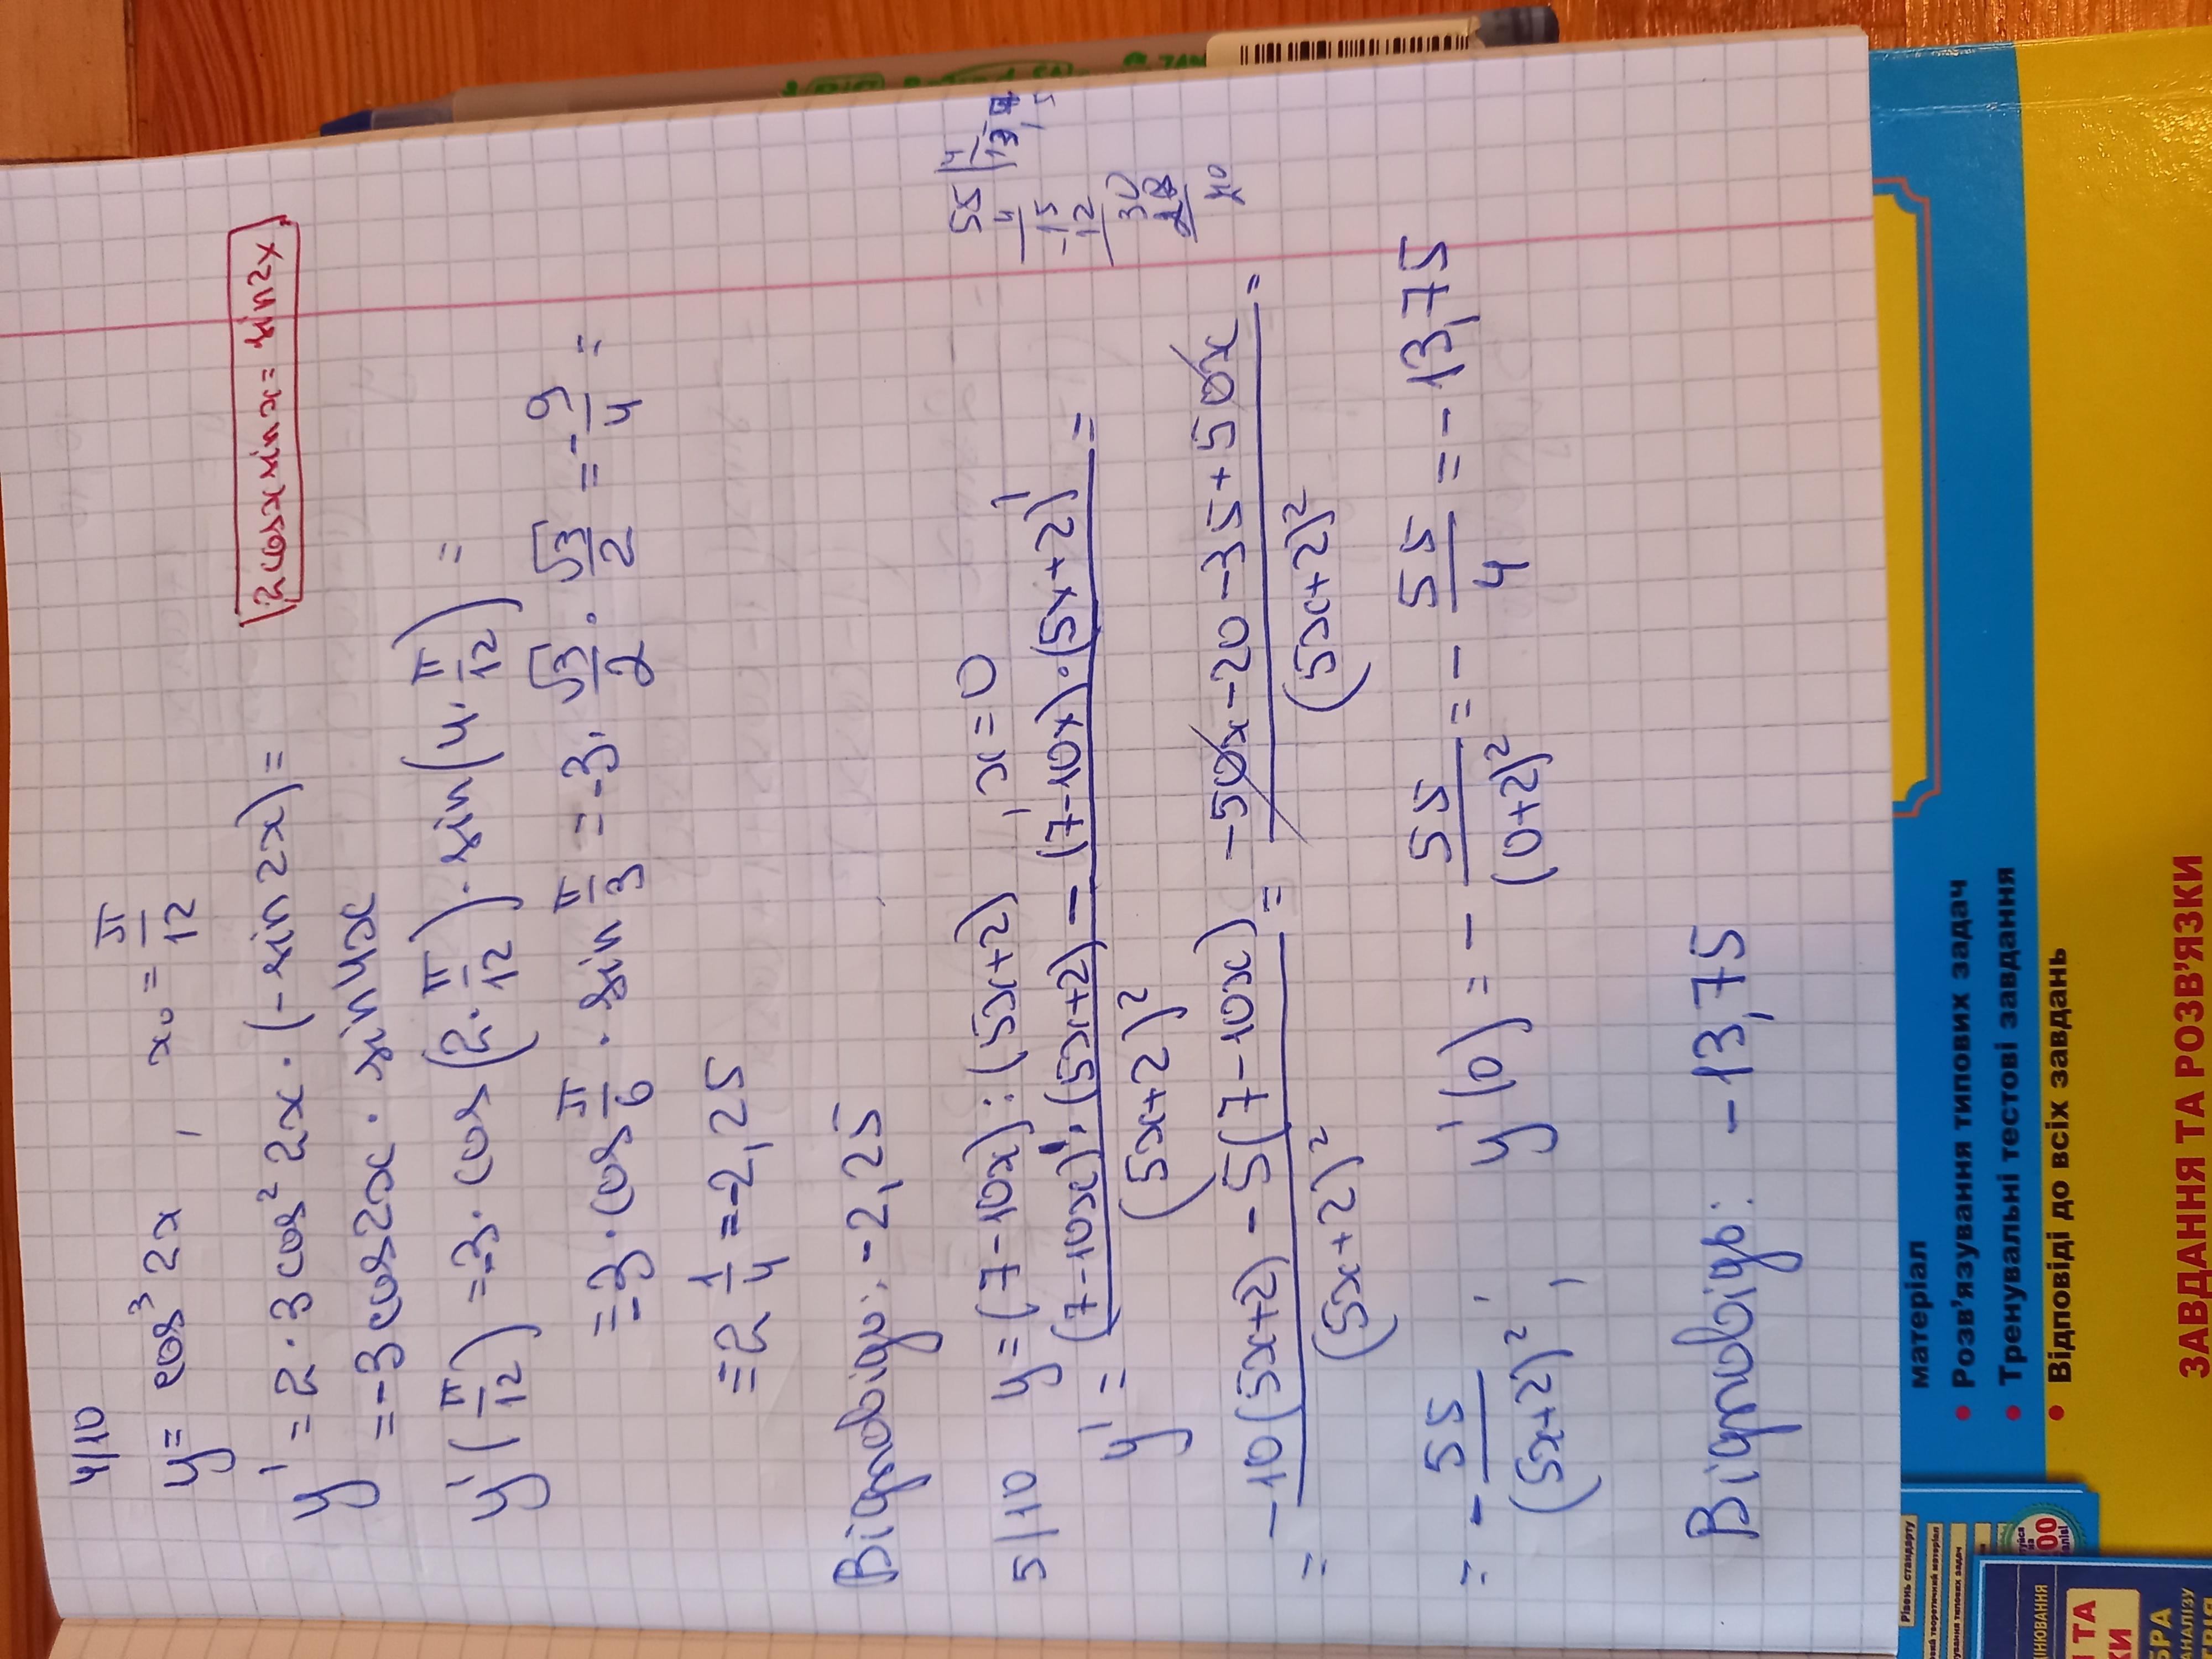 4/10
y = cos³ 2x , x₀ = π/12
2cosx sin x = sin2x
y' = 2 · 3 cos² 2x · (- sin 2x) =
= -3 cos2x · sin4x
y'(π/12) = -3 · cos(2 · π/12) · sin(4 · π/12) =
= -3 · cos π/6 · sin π/3 = -3 · √3/2 · √3/2 = -9/4 =
= 2 1/4 = -2,25
Відповідь: -2,25
5/10 y = (7-10x) : (5x+2) , x = 0
y' = ((7-10x)' · (5x+2) - (7-10x) · (5x+2)')/(5x+2)² =
= (-10(5x+2) - 5(7-10x))/(5x+2)² = (-50x - 20 - 35 + 50x)/(5x+2)² =
= - 55/(5x+2)² ; y'(0) = - 55/(0+2)² = - 55/4 = -13,75
Відповідь: -13,75
55 | 4
4 13,7
-15 5
12
30
28
20
матеріал
• Розв'язування типових задач
• Тренувальні тестові завдання
• Відповіді до всіх завдань
ЗАВДАННЯ ТА РОЗВ'ЯЗКИ
Рівень стандарту